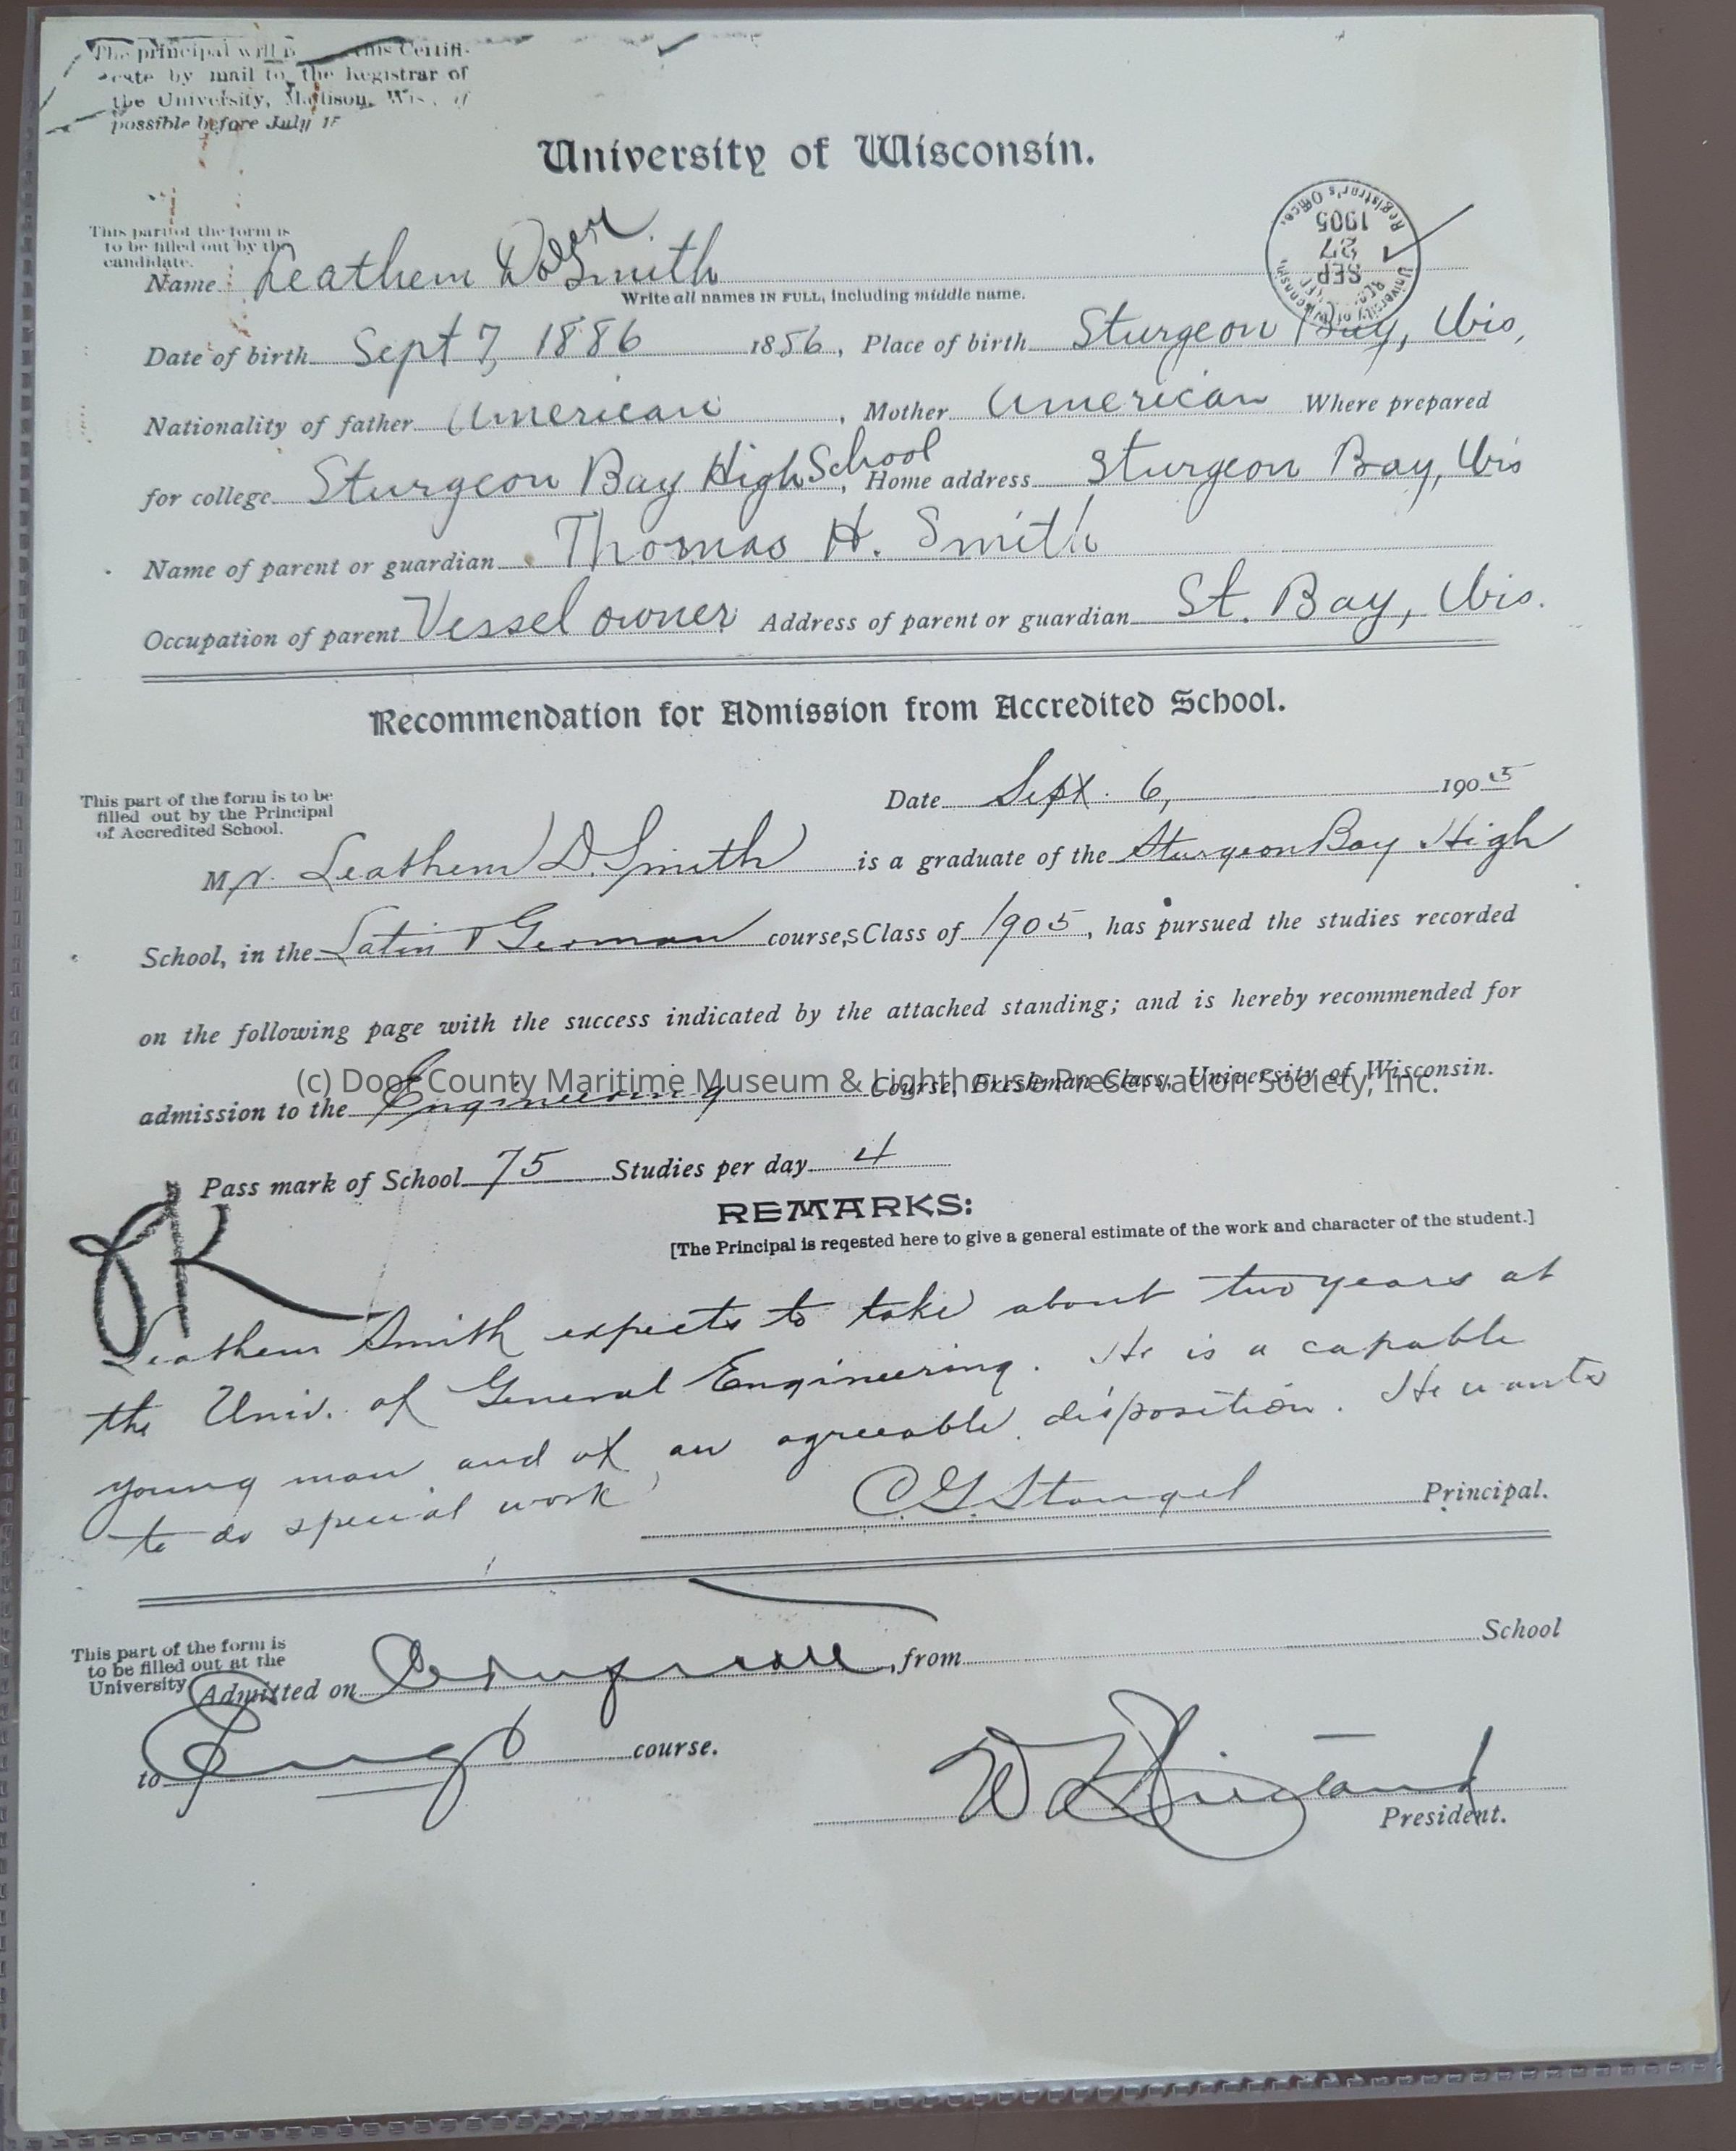 The principal will this Certifi-
cate by mail to the Registrar of
the University, Madison, Wis., if
possible before July 15
University of Wisconsin.
University of Wisconsin
SEP
27
1905
Registrar's Office.
This part of the form is
to be filled out by the
candidate.
Name Leathem D. Smith
Write all names IN FULL, including middle name.
Date of birth Sept 7, 1886 1886, Place of birth Sturgeon Bay, Wis,
Nationality of father American, Mother American Where prepared
for college Sturgeon Bay High School, Home address Sturgeon Bay, Wis
Name of parent or guardian Thomas H. Smith
Occupation of parent Vessel owner Address of parent or guardian St. Bay, Wis.
Recommendation for Admission from Accredited School.
This part of the form is to be
filled out by the Principal
of Accredited School.
Date Sept. 6, 1905
Mr. Leathem D. Smith is a graduate of the Sturgeon Bay High
School, in the Latin & German course,s Class of 1905, has pursued the studies recorded
on the following page with the success indicated by the attached standing; and is hereby recommended for
(c) Door County Maritime Museum & Lighthouse Preservation Society, Inc.
admission to the Engineering Course, Freshman Class, University of Wisconsin.
Pass mark of School 75 Studies per day 4
REMARKS:
[The Principal is reqested here to give a general estimate of the work and character of the student.]
OK
Leathem Smith expects to take about two years at
the Univ. of General Engineering. He is a capable
young man and of an agreeable disposition. He wants
to do special work
C. G. Stangel Principal.
This part of the form is
to be filled out at the
University
Admitted on, from School
to Eng course.
President.